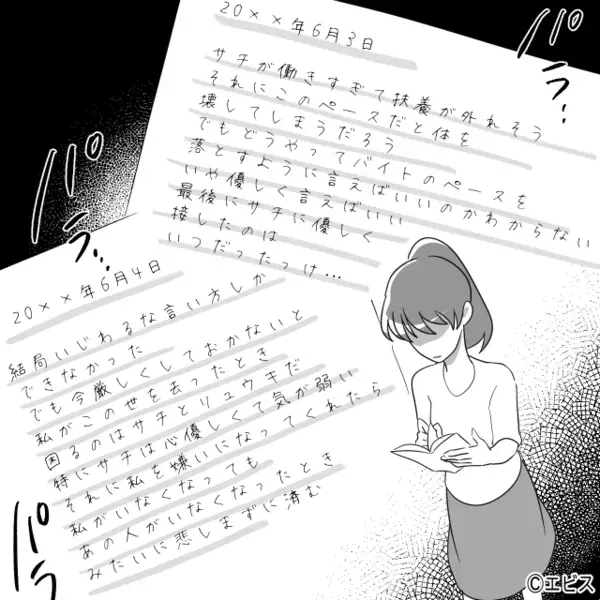 20××年6月3日
サチが働きすぎて扶養が外れそう
それにこのペースだと体を
壊してしまうだろう
でもどうやってバイトのペースを
落とすように言えばいいのかわからない
いや優しく言えばいい
最後にサチに優しく
接したのは
いつだったっけ…
パラ…
パラ…
20××年6月4日
結局いじわるな言い方しか
できなかった
でも今厳しくしておかないと
私がこの世を去ったとき
困るのはサチとリュウキだ
特にサチは心優しくて気が弱い
それに私を嫌いになってくれたら
私がいなくなっても
あの人がいなくなったとき
みたいに悲しまずに済む
パラ…
©エビス